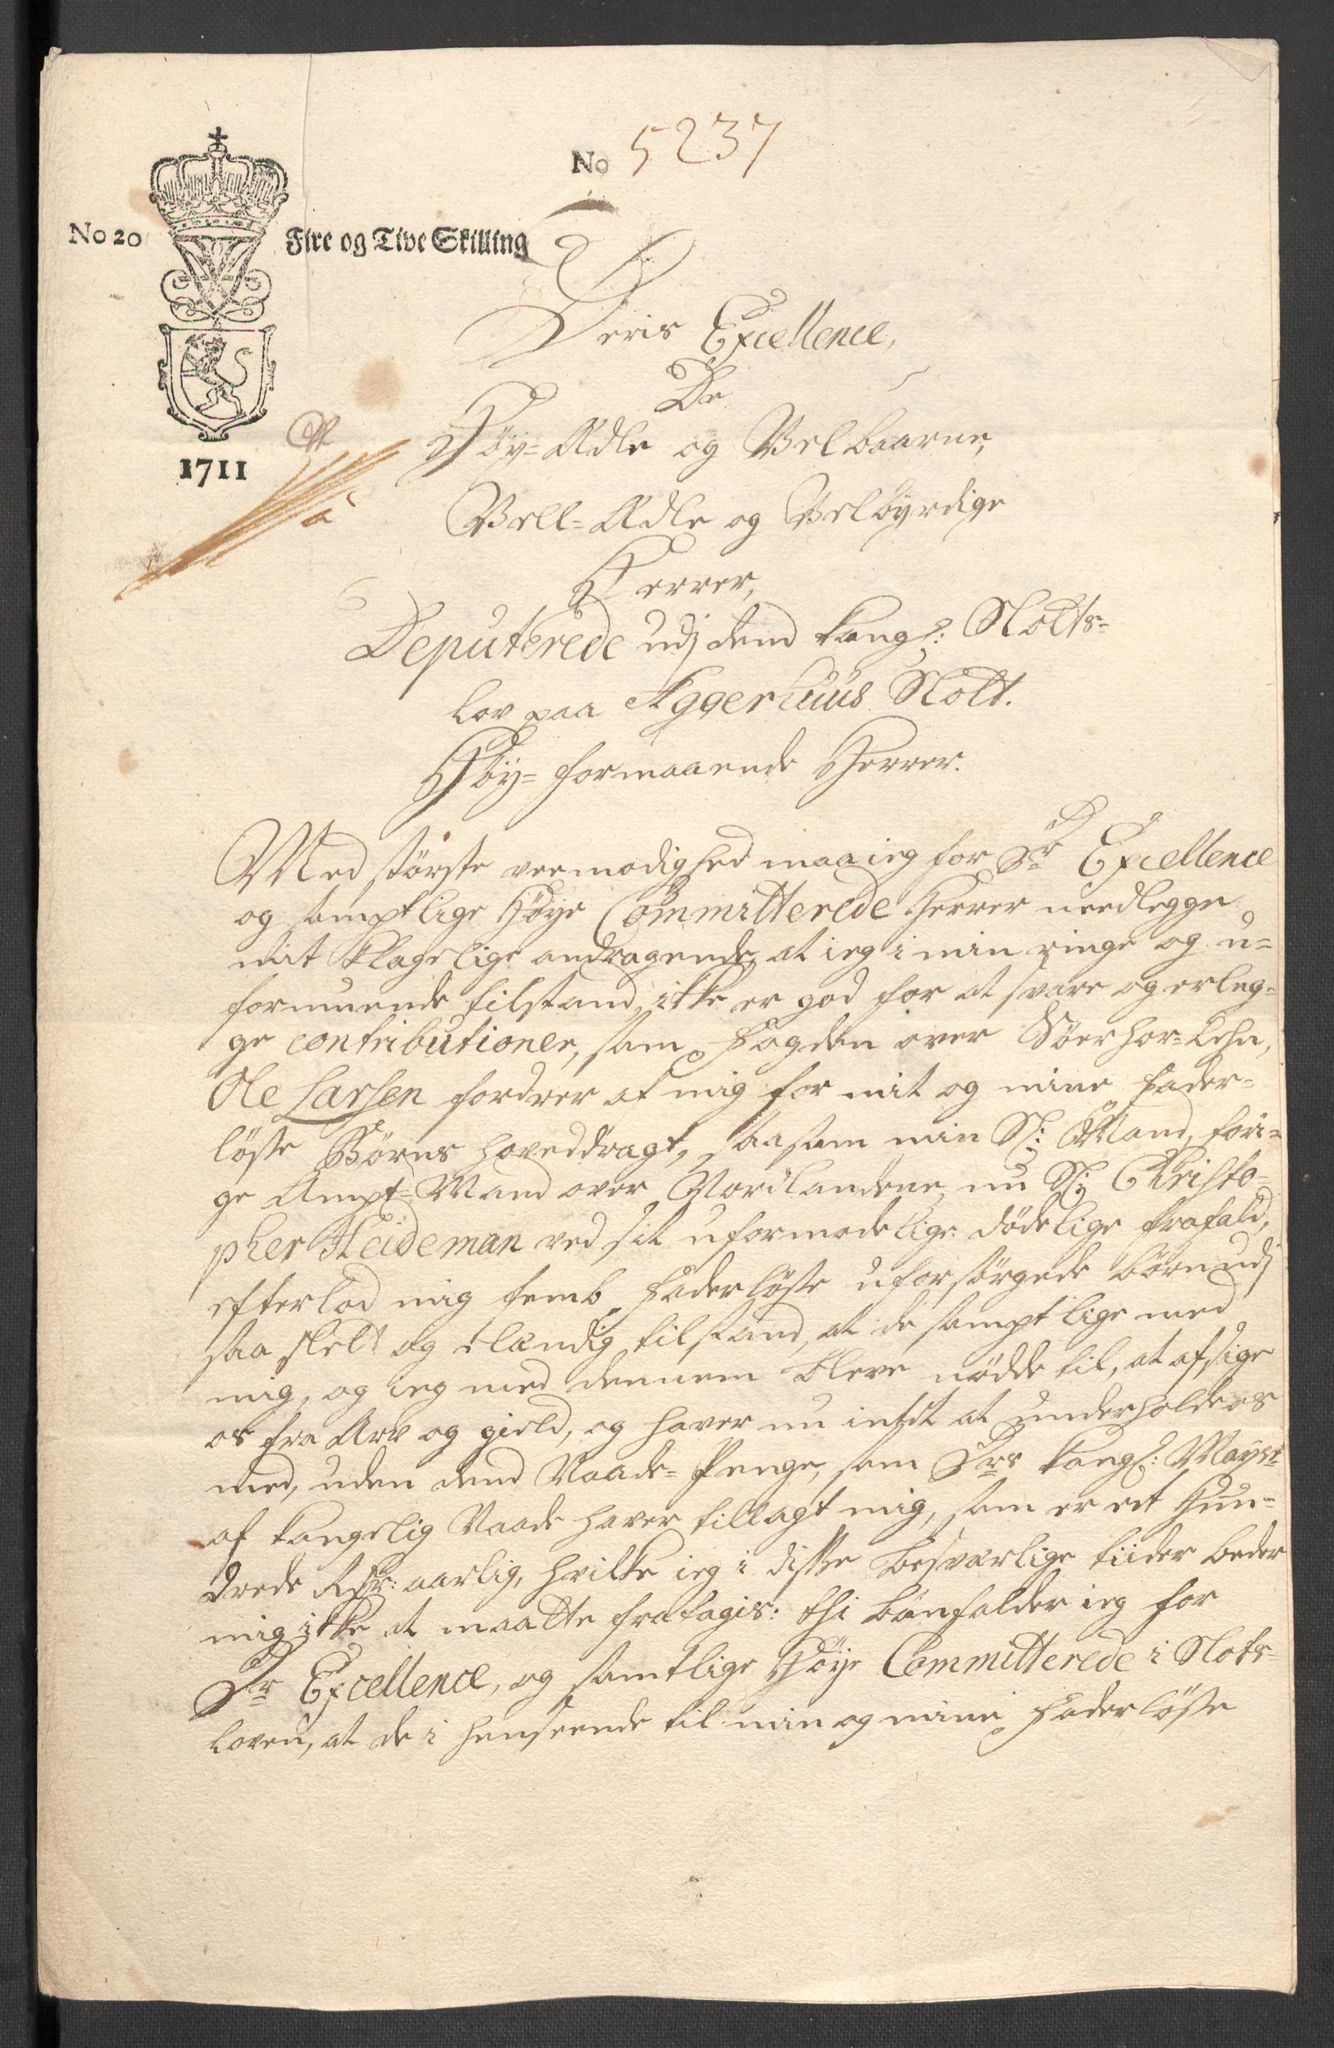 No 5237
No 20
Fire og Tive Skilling
1711
à
Deris Excellence,
De
Høy-Ædle og Velbaarne,
Vell-Ædle og Velbyrdige
Herrer,
Deputerede udj dend kongl: Slots-
lov paa Aggerhuus Slott.
Høy-formaaende Herrer.
Med største veemodighed maa ieg for Dr Excellence
og samptlige Høye Committerede Herrer needlegge
mit klagelige andragende, at ieg i min ringe og u-
formuende tilstand, ikke er god for at svare og erleg-
ge contributioner, som Fogden over Søerhor-Lehn,
Ole Larsen fordrer af mig for mit og mine Fader-
løsse Børns hoveddragt, saasom min Sl: Mand, fori-
ge Ampt-Mand over Nordlandene, nu Sl: Christo-
pher Heideman ved sit uformodelige dødelige frafald,
efterlod mig femb Faderløsse uforsørgede børn udj
saa slett og elændig tilstand, at de samptlige med
mig, og ieg med dennem bleve nødde til, at afsige
os fra Arv og gield, og haver nu intet at underholde os
med, uden dend Naade-Penge, som Hs kongl: Mayst
af kongelig Naade haver tillagt mig, som er et Hun-
drede Rdr: aarlig, hvilke ieg i disse besværlige tiider beder
mig ikke at maatte fratagis: thi bønfalder ieg for
Dr Excellence, og samtlige Høye Committerede i Slots-
loven, at de i henseende til min og mine Faderløsse